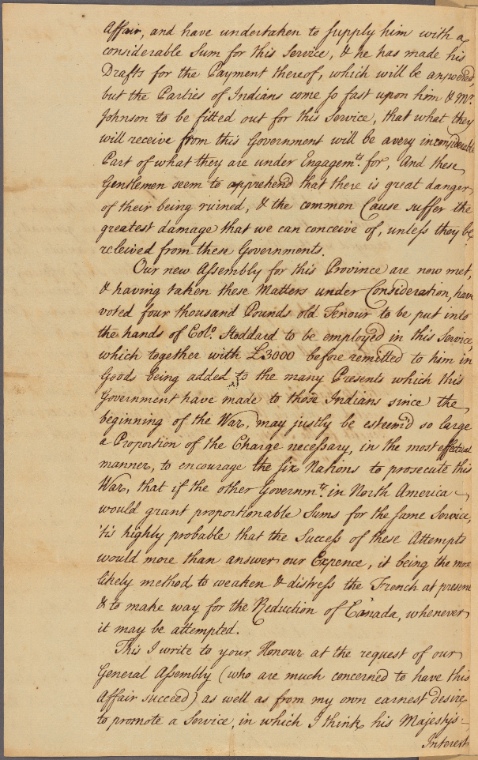 Affair, and have undertaken to supply him with a
considerable Sum for this Service, & he has made his
Drafts for the Payment thereof, which will be answered,
but the Parties of Indians come so fast upon him & Mr.
Johnson to be fitted out for this Service, that what they
will receive from this Government will be a very inconsiderable
Part of what they are under Engagemts. for, And these
Gentlemen seem to apprehend that there is great danger
of their being ruined, & the common Cause suffer the
greatest damage that we can conceive of, unless they be
relieved from these Governments.
Our new Assembly for this Province are now met,
& having taken these Matters under Consideration, have
voted four thousand Pounds old Tenour to be put into
the hands of Colo. Stoddard to be employed in this Service,
which together with £3000 before remitted to him in
Goods being added to the many Presents which this
Government have made to those Indians since the
beginning of the War, may justly be esteem'd so large
a Proportion of the Charge necessary, in the most effectual
manner, to encourage the six Nations to prosecute this
War, that if the other Governmts. in North America
would grant proportionable Sums for the same Service,
'tis highly probable that the Success of these Attempts
would more than answer our Expence, it being the most
likely method to weaken & distress the French at present
& to make way for the Reduction of Canada, whenever
it may be attempted.
This I write to your Honour at the request of our
General Assembly (who are much concerned to have this
Affair succeed) as well as from my own earnest desire
to promote a Service, in which I think his Majesty's
Interest